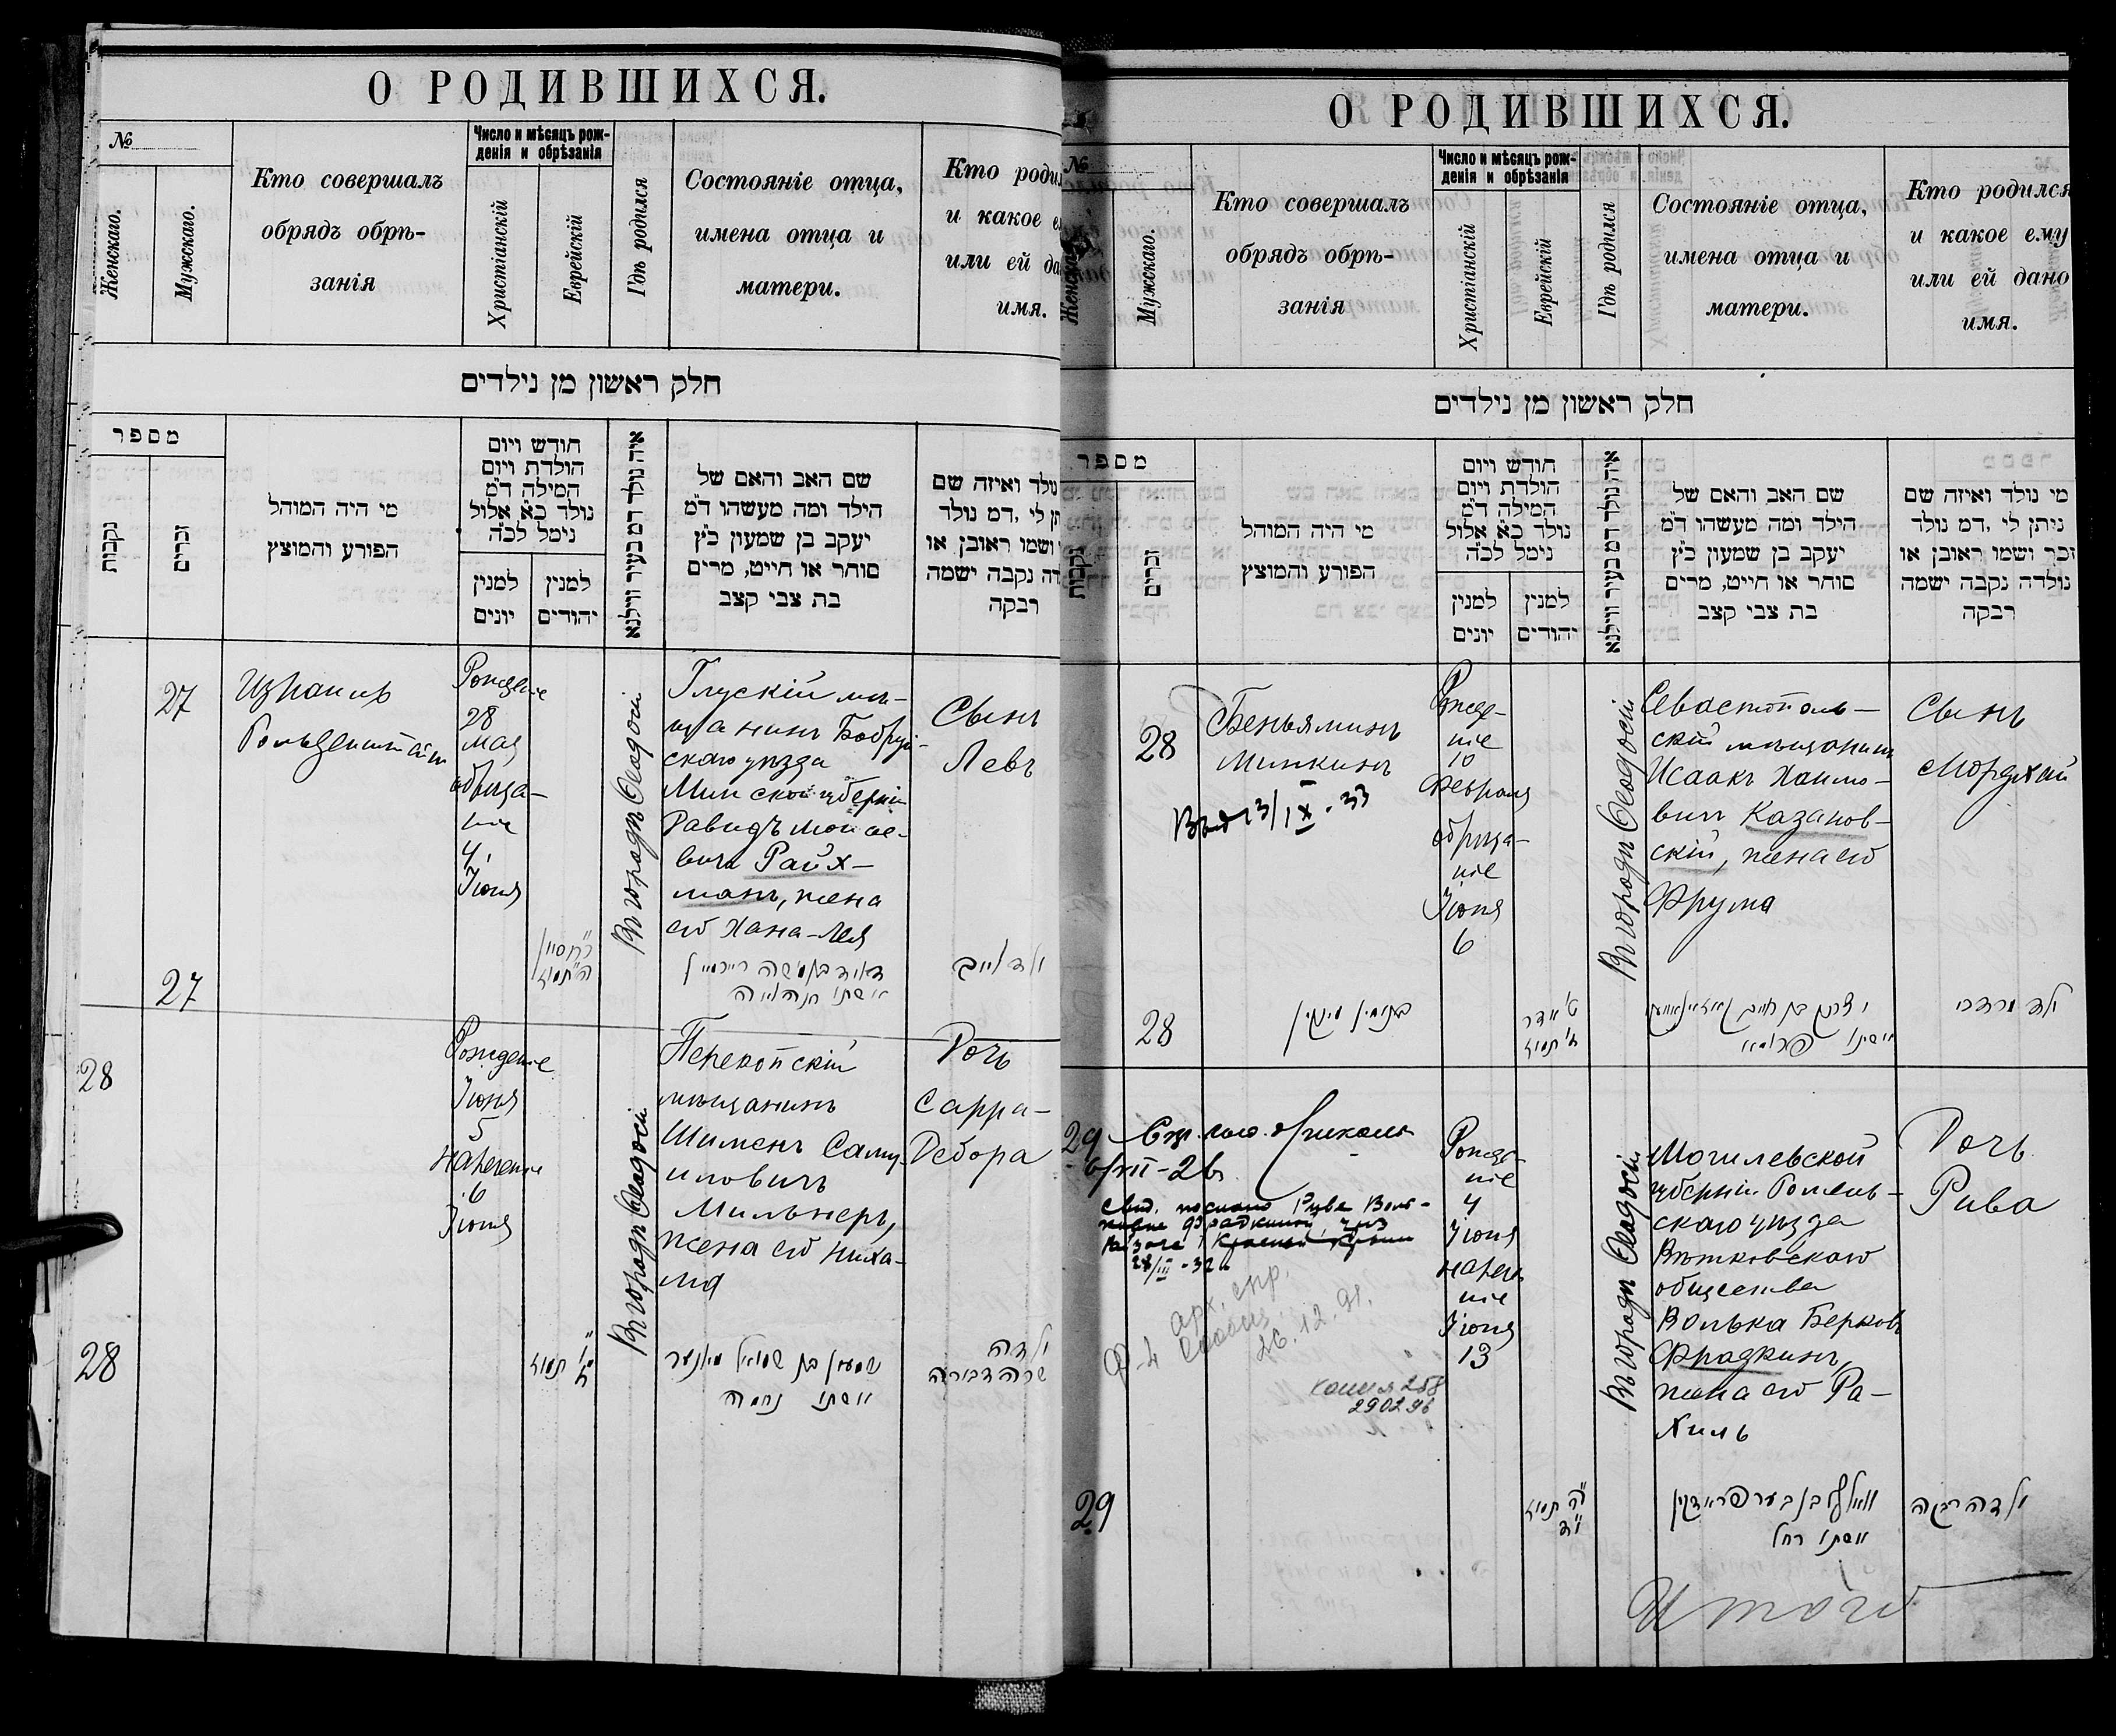 О РОДИВШИХСЯ.
№
Женскаго.
Мужскаго.
Кто совершалъ
обрядъ обрѣ-
занія
Число и мѣсяцъ рож-
денія и обрѣзанія
Христіанскій
Еврейскій
Гдѣ родился
Состояніе отца,
имена отца и
матери.
Кто роди
и какое е
или ей да
имя.
חלק ראשון מן נילדים
מספר
נקבות
זכרים
מי היה המוהל
הפורע והמוצץ
חודש ויום
הולדת ויום
המילה ד״מ
נולד כ״א אלול
נימל לכ״ה
למנין
יונים
למנין
יהודים
איה נולד דמ בעיר ווילנא
שם האב והאם של
הילד ומה מעשהו ד״מ
יעקב בן שמעון כ״ץ
סוחר או חייט, מרים
בת צבי קצב
נולד ואיזה שם
תן לי, דמ נולד
ושמו ראובן או
דה נקבה ישמה
רבקה
27
Израиль
Гольденштейн
Рождение
28
мая
обреза-
ние
4
Іюня
Въ городѣ Ѳеодосіи
Глускій мѣ-
щанинъ Бобруй-
скаго уѣзда
Минской губерніи
Давидъ Моисе-
вичъ Райх-
манъ, жена
его Хана-Лея
Сынъ
Левъ
27
דוד בן משה רייכמן
אשתו חנה לאה
ילד לייב
28
Рождение
Іюня
5
наречение
6
Іюня
Въ городѣ Ѳеодосіи
Перекопскій
мѣщанинъ
Шименъ Саму-
иловичъ
Мильнеръ,
жена его Неха-
ма
Дочь
Сарра-
Дебора
28
שמעון בן שמואל מילנער
ואשתו נחמה
ילדה
שרה דבורה
О РОДИВШИХСЯ.
№
Женскаго
Мужскаго.
Кто совершалъ
обрядъ обрѣ-
занія
Число и мѣсяцъ рож-
денія и обрѣзанія
Христіанскій
Еврейскій
Гдѣ родился
Состояніе отца,
имена отца и
матери.
Кто родился
и какое ему
или ей дано
имя.
חלק ראשון מן נילדים
מספר
נקבות
זכרים
מי היה המוהל
הפורע והמוצץ
חודש ויום
הולדת ויום
המילה ד״מ
נולד כ״א אלול
נימל לכ״ה
למנין
יונים
למנין
יהודים
איה נולד דמ בעיר ווילנא
שם האב והאם של
הילד ומה מעשהו ד״מ
יעקב בן שמעון כ״ץ
סוחר או חייט, מרים
בת צבי קצב
מי נולד ואיזה שם
ניתן לי, דמ נולד
זכר ושמו ראובן או
נולדה נקבה ישמה
רבקה
28
Беньяминъ
Минкинъ
Рожде-
ние
10
Февраля
обреза-
ние
Іюня
6
Въ городѣ Ѳеодосіи
Севастополь-
скій мѣщанинъ
Исаакъ Хаимо-
вичъ Казанов-
скій, жена его
Фрума
Сынъ
Мордхай
28
בנימין מינקין
ט׳ אדר
ח׳ תמוז
ואשתו פרומא
ילד מרדכי
29
6/XII-26
28/III-32
26.12.91.
копия 258
290296
Рожде-
ние
4
Іюня
нарече-
ние
Іюня
13
Въ городѣ Ѳеодосіи
Могилевской
губерніи Гомель-
скаго уѣзда
Вѣтковскаго
общества
Волька Берковъ
Фрадкинъ,
жена его Ра-
хиль
Дочь
Рива
29
וואלף בן בער פראדקין
ואשתו רחל
ילדה רבקה
Итого